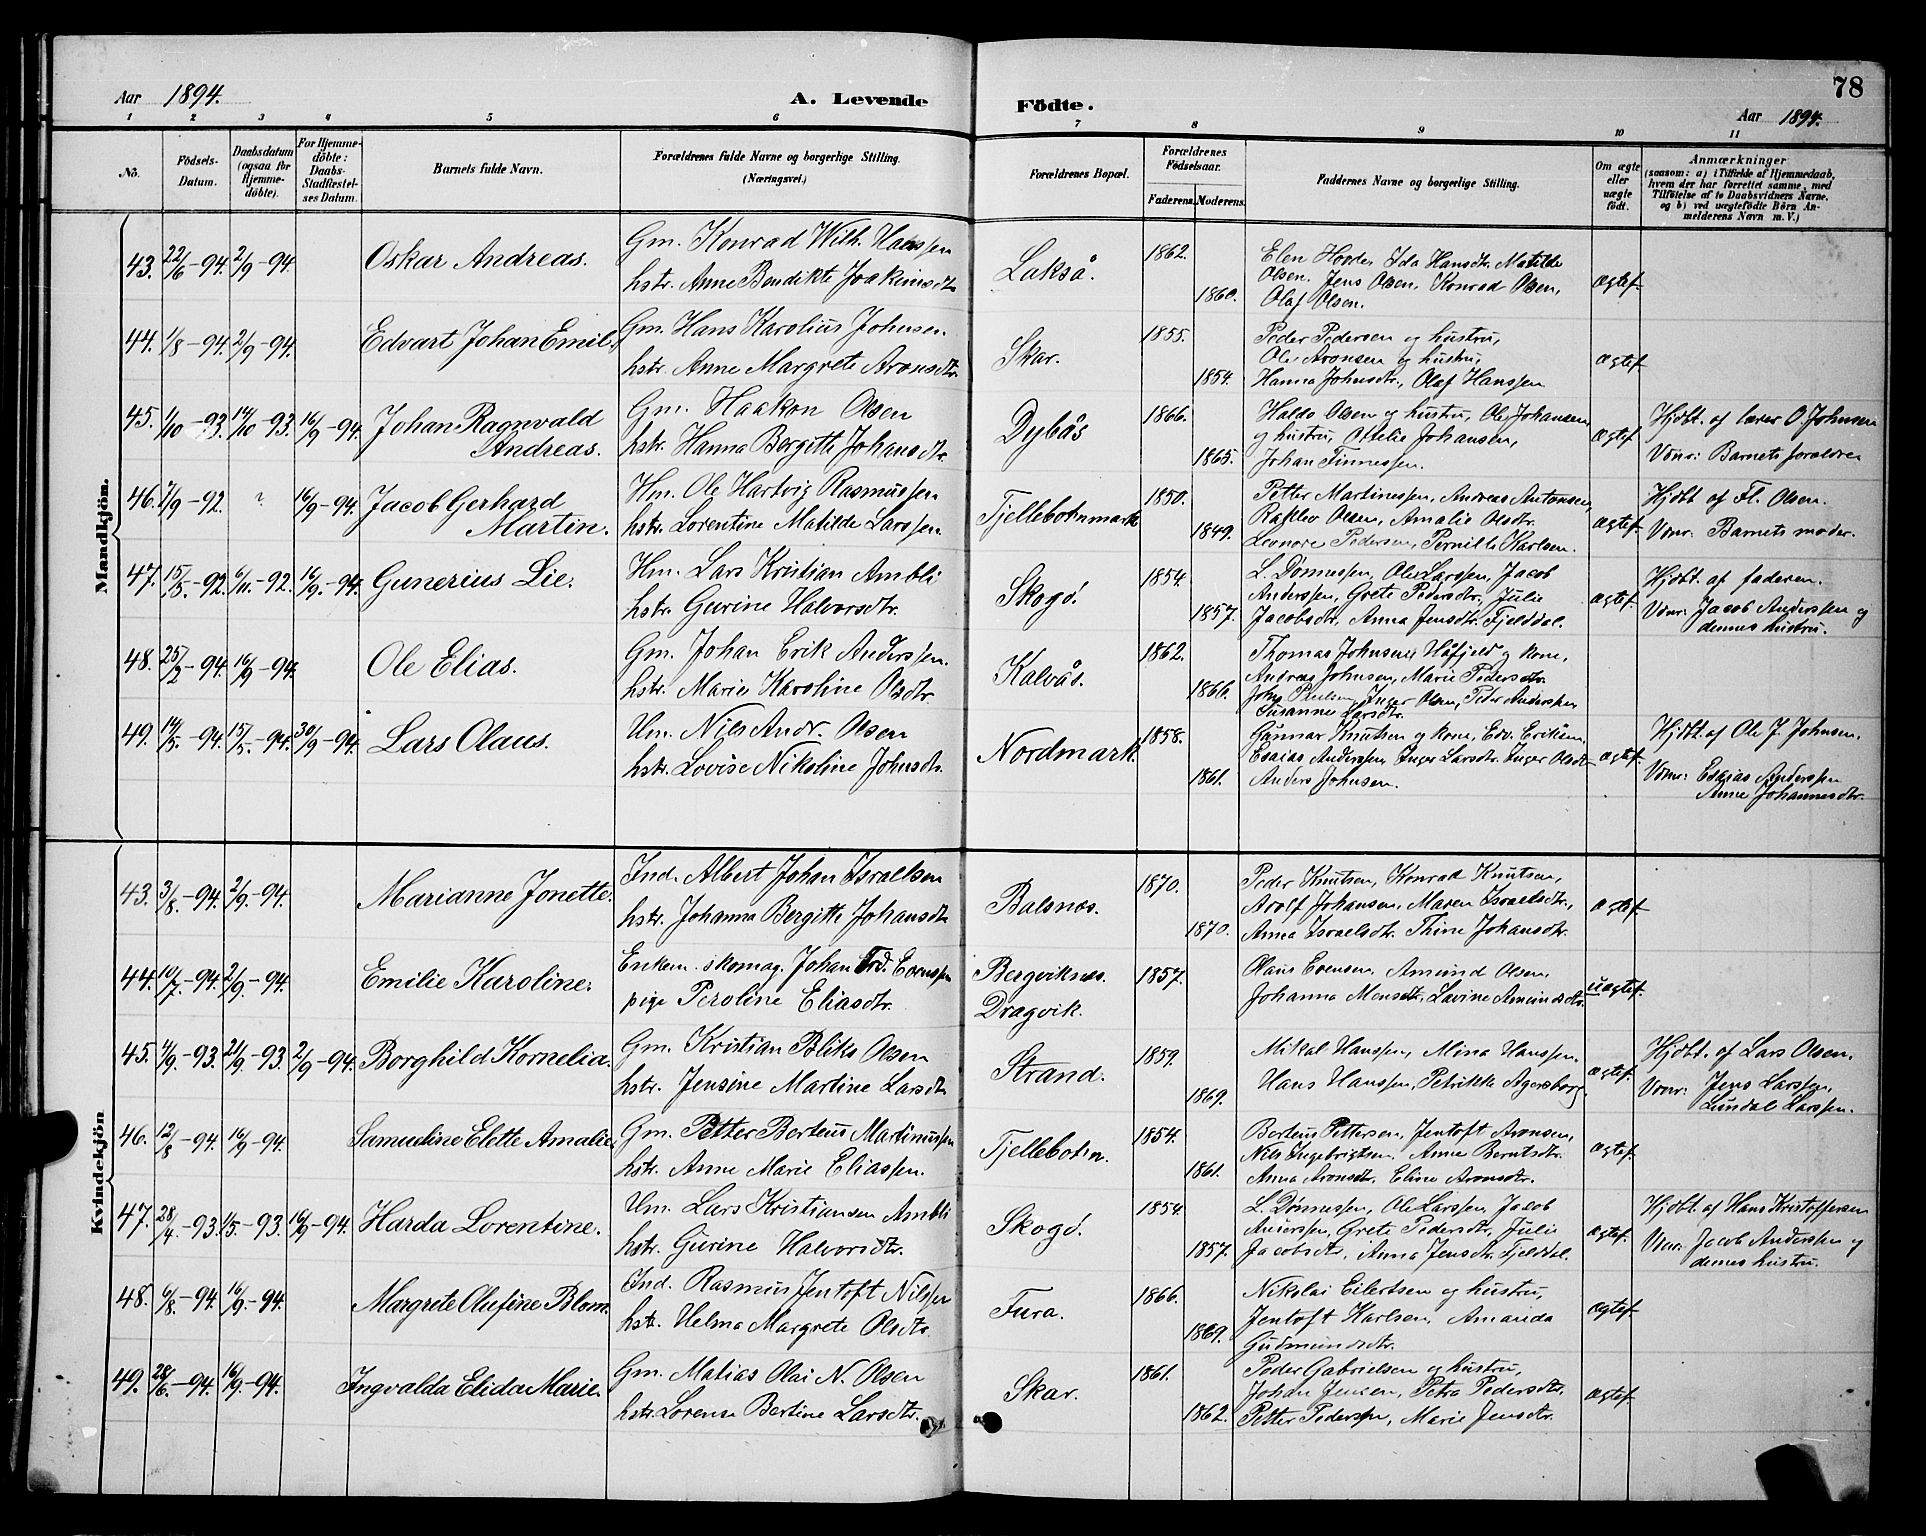 Aar 1894.
A. Levende
Födte.
78
Aar 1894.
1 2 3 4 5 6 7 8 9 10 11
No.
Födsels-Datum.
Daabsdatum (ogsaa for Hjemme-döbte).
For Hjemme-döbte: Daabs-Stadfæstel-ses Datum.
Barnets fulde Navn.
Forældrenes fulde Navne og borgerlige Stilling.
(Næringsvei.)
Forældrenes Bopæl.
Forældrenes Födselsaar.
Faderens. Moderens.
Faddernes Navne og borgerlige Stilling.
Om ægte eller uægte födt.
Anmærkninger
(saasom: a) i Tilfælde af Hjemmedaab,
hvem der har forrettet samme, med
Tilföielse af to Daabsvidners Navne,
og b) ved uægtefödte Börn An-
melderens Navn m. V.)
Mandkjön.
43. 22/6-94. 2/9-94. Oskar Andreas. Gm. Konrad Wilh. Hanssen
hstr. Anne Bendikte Joakimsdtr.
Lakså. 1862. 1860.
Elen Hovde, Ida Hansdtr. Matilde
Olsen. Jens Olsen, Konrad Olsen,
Olaf Olsen.
Ægtef.
44. 1/8-94. 2/9-94. Edvart Johan Emil. Gm. Hans Karolius Johnsen
hstr. Anne Margrete Aronsdtr.
Skar. 1855. 1854.
Peder Pedersen og hustru,
Ole Aronsen og hustru,
Hanna Johnsdtr., Olaf Hanssen
Ægtef.
45. 1/10-93. 14/10-93. 16/9-94. Johan Ragnvald
Andreas.
Gm. Haakon Olsen
hstr. Hanna Bergitte Johansdtr.
Dybås 1866. 1865.
Haldo Olsen og hustru, Ole Johansen
og hustru, Ottelie Johansen,
Johan Finnessen.
Ægtef.
Hjdbt. af lærer O. Johnsen
Vonr: Barnets forældre
46. 7/9-92. ? 16/9-94. Jacob Gerhard
Martin.
Hm. Ole Hartvig Rasmussen
hstr. Lorentine Matilde Larssen.
Tjellebotnmark 1850. 1849.
Petter Martinessen, Andreas Antonsen,
Olsen, Amalie Olsdtr.
Leonore Pedersen, Pernille Karlsen.
Ægtef.
Hjdbt af Fl. Olsen.
Vonr: Barnets moder.
47. 15/5-92. 6/11-92. 16/9-94. Gunerius Lie. Hm. Lars Kristian Ambli
hstr. Gurine Halvorsdtr.
Skogö. 1854. 1857.
L. Dönnessen, Ole Larssen, Jacob
Anderssen, Grete Pedersdtr., Julie
Jacobsdtr., Anna Jensdtr. Fjelddal.
Ægtef.
Hjdbt. af faderen.
Vonr: Jacob Anderssen og
dennes hustru.
48. 25/2-94. 16/9-94. Ole Elias. Gm. Johan Erik Anderssen.
hstr. Marie Karoline Olsdtr.
Kalvås. 1862. 1866.
Thomas Johnsen Håfjeld og kone,
Andreas Johnsen, Marie Pedersdtr.
Inger Olsen, Peder Anderssen
Susanne Larsdtr.
49. 14/5-94. 15/5-94. 30/9-94. Lars Olaus. Um. Nils Andr. Olsen
hstr. Lovise Nikoline Johnsdtr.
Nordmark. 1858. 1861.
Gunnar Knutsen og kone, Edv. Eriksen,
Esaias Anderssen, Inger Larsdtr. Inger Olsdtr.
Anders Johnsen.
Ægtef.
Hjdbt. af Ole J. Johnsen.
Vonr: Esaias Anderssen
Anne Johannesdtr.
Kvindekjön
43. 3/8-94. 2/9-94. Marianne Jonette. Ind. Albert Johan Israelsen
hstr. Johanna Bergitte Johansdtr
Balsnæs. 1870. 1870.
Peder Knutsen, Konrad Knutsen,
Adolf Johansen, Maren Israelsdtr.,
Anna Israelsdtr. Thine Johansdtr.
Ægtef.
44. 10/7-94. 2/9-94. Emilie Karoline. Enkem. skomag. Johan Frd. Evenssen
pige Peroline Eliasdtr.
Bergviknæs.
Dragvik.
1857.
Olaus Evensen, Amund Olsen,
Johanna Monsdtr, Lavine Amundsdtr.
uægtef.
45. 4/9-93. 24/9-93. 2/9-94. Borghild Kornelia. Gm. Kristian Bliks Olsen
hstr. Jensine Martine Larsdtr
Strand. 1859. 1869.
Mikal Hanssen, Mina Hanssen.
Hans Hanssen, Petrikke Agersborg.
Ægtef.
Hjdbt. af Lars Olsen.
Vonr: Jens Larssen,
Lundal Larssen.
46. 12/8-94. 16/9-94. Samueline Elette Amalie. Gm. Petter Berteus Martinussen
hstr. Anne Marie Eliassen.
Tjellebotn. 1854. 1861.
Berteus Pettersen, Jentoft Aronsen,
Nils Ingebrigtsen. Anne Berntsdtr.
Anna Aronsdtr. Eline Aronsdtr.
Ægtef.
47. 28/4-93. 1/5-93. 16/9-94. Harda Lorentine. Um. Lars Kristiansen Ambli
hstr. Gurine Halvorsdtr.
Skogö. 1854. 1857.
L. Dönnessen, Ole Larssen, Jacob
Anderssen, Grete Pedersdtr., Julie
Jacobsdtr., Anna Jensdtr. Fjelddal.
Ægtef.
Hjdbt. af Hans Kristoffersen
Vonr: Jacob Anderssen og
dennes hustru.
48. 6/8-94. 16/9-94. Margrete Olufine Blom. Ind. Rasmus Jentoft Nilssen
hstr. Helma Margrete Olsdtr.
Fura. 1866. 1869.
Nikolai Eilertsen og hustru,
Jentoft Karlsen, Amanda
Gudmundsdtr.
Ægtef.
49. 28/6-94. 16/9-94. Ingvalda Elida Marie. Gm. Matias Olai N. Olsen
hstr. Lorense Bertine Larsdtr.
Skar. 1861. 1862.
Peder Gabrielsen og hustru,
Johan Jensen, Petra Pedersdtr.
Petter Pedersen, Marie Jensdtr.
Ægtef.